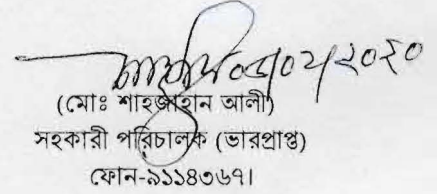 ০৮/০২/২০২০
(মোঃ শাহজাহান আলী)
সহকারী পরিচালক (ভারপ্রাপ্ত)
ফোন-৯১১৪৩৬৭।